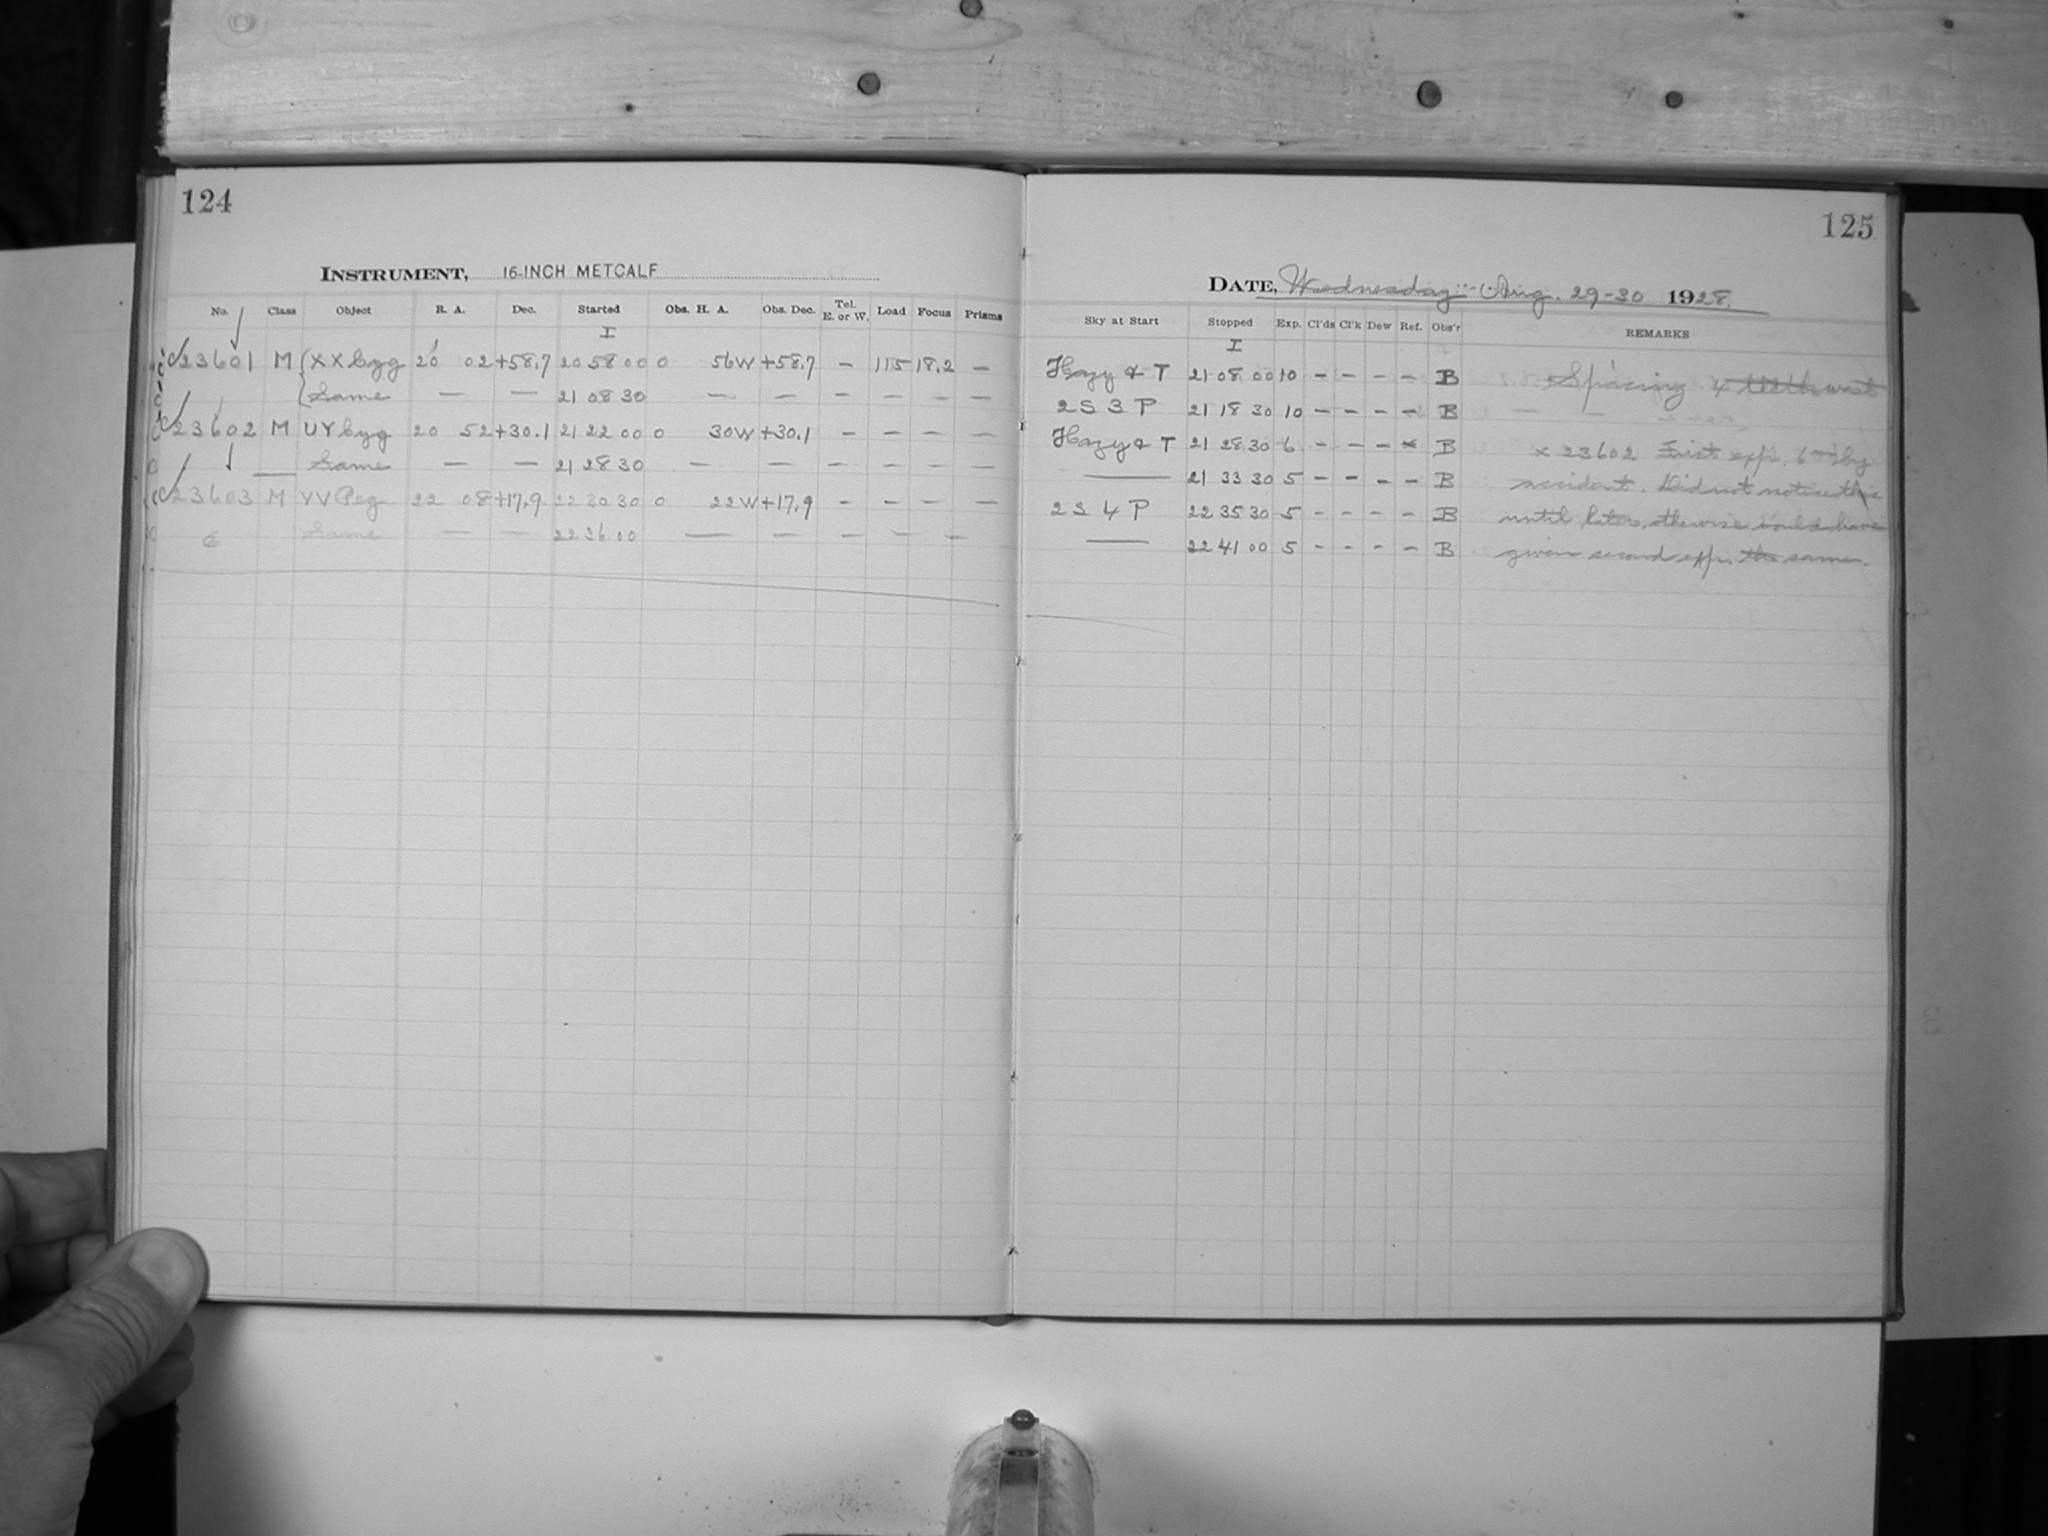 124
INSTRUMENT, 16-INCH METCALF
No. Class Object R. A. Dec. Started Obs. H. A. Obs. Dec. Tel. E. or W. Load Focus Prisms
I
C 23601 M XX Cyg 20 02 +58.7 20 58 00 0 56W +58.7 – 115 18.2 –
Same — — 21 08 30 — — – – – –
C 23602 M UY Cyg 20 52 +30.1 21 22 00 0 30W +30.1 – – – –
Same — — 21 28 30 — — – – – –
C 23603 M VV Peg 22 08 +17.9 22 30 30 0 22W +17.9 – – – –
6 Same — — 22 36 00 — — – – – –
125
DATE, Wednesday Aug. 29-30 1928.
Sky at Start Stopped Exp. Cl'ds Cl'k Dew Ref. Obs'r REMARKS
I
Hazy & T 21 08 00 10 – – – – B Spacing 4 teeth west
2 S 3 P 21 18 30 10 – – – – B
Hazy & T 21 28 30 6 – – – × B × 23602 First exp. 6 min by
— 21 33 30 5 – – – – B accident. Did not notice this
2 S 4 P 22 35 30 5 – – – – B until later, otherwise would have
— 22 41 00 5 – – – – B given second exp. the same.